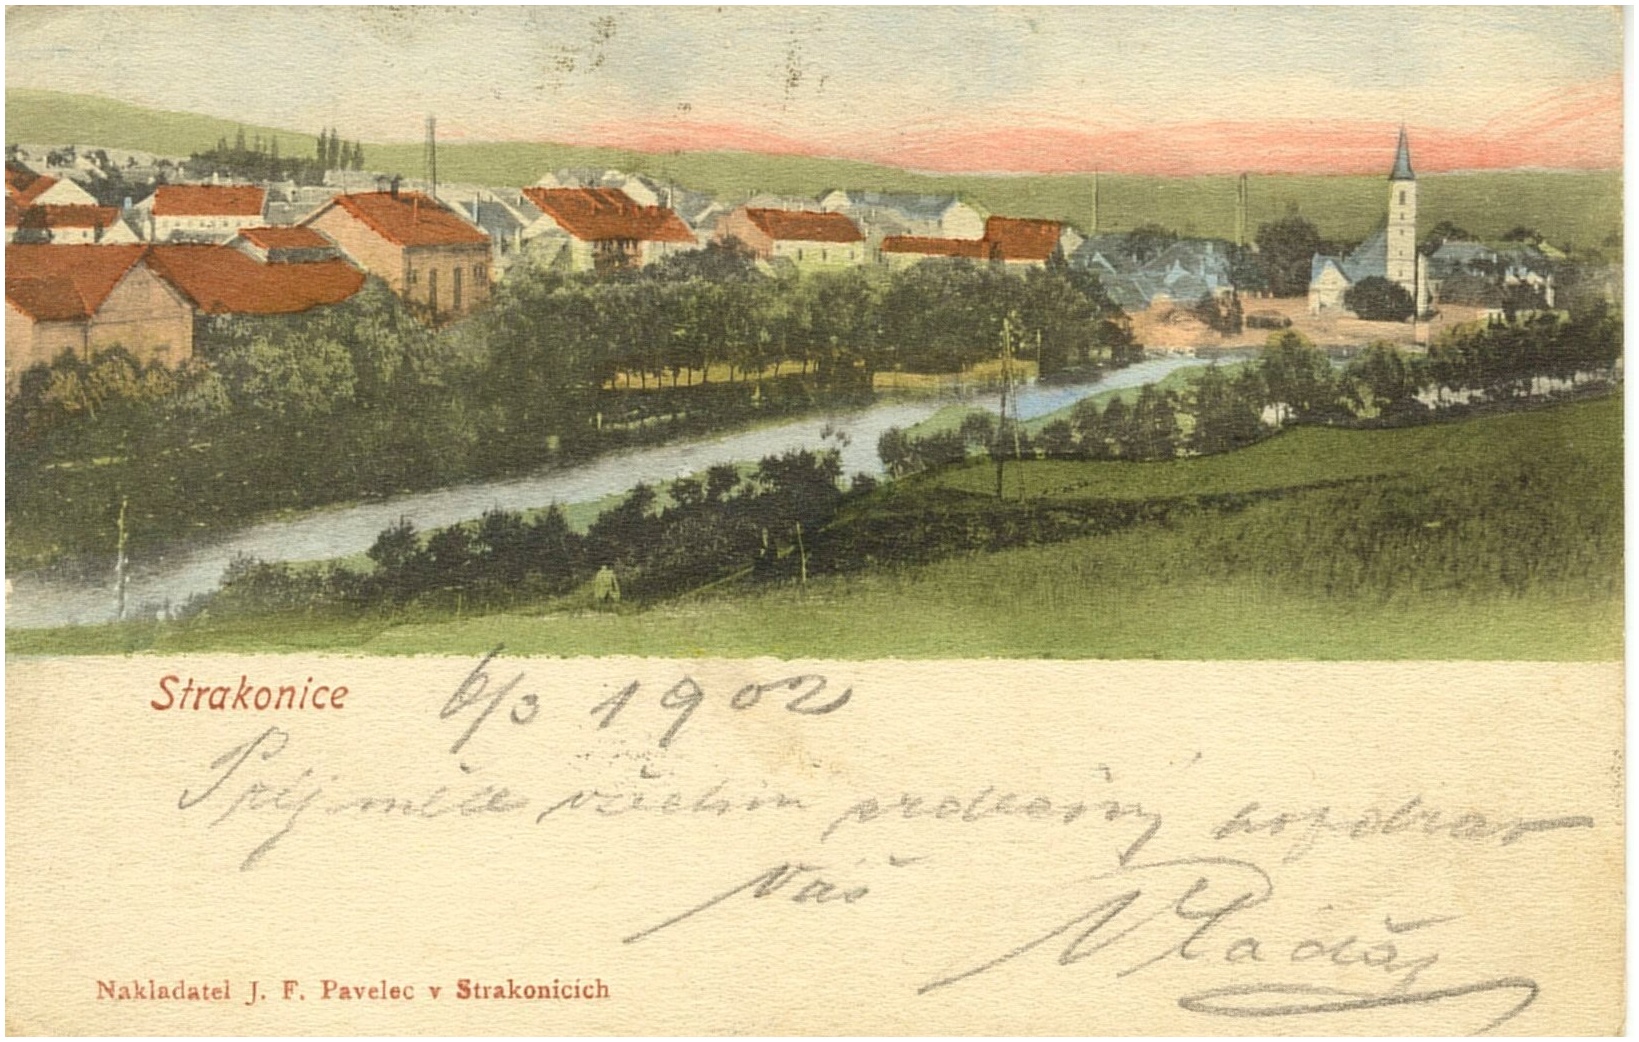 Strakonice
6/3 1902
Přijměte všichni srdečný pozdrav
Váš
Nakladatel J. F. Pavelec v Strakonicích